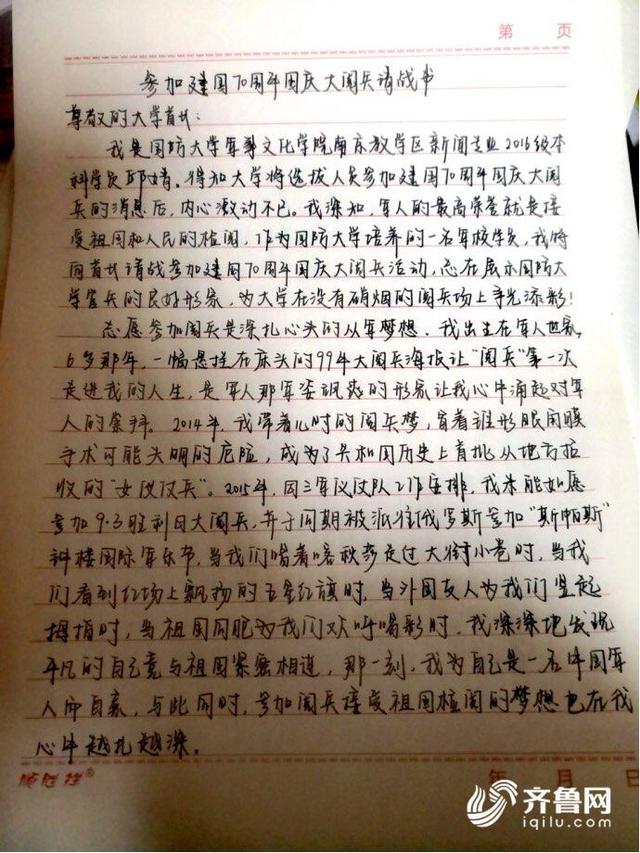 第 页
参加建国70周年国庆大阅兵请战书
尊敬的大学首长：
我是国防大学军事文化学院南京教学区新闻专业2016级本
科学员邱婧。得知大学将选拔人员参加建国70周年国庆大阅
兵的消息后，内心激动不已。我深知，军人的最高荣誉就是接
受祖国和人民的检阅，作为国防大学培养的一名军校学员，我将
向首长请战参加建国70周年国庆大阅兵活动，志在展示国防大
学官兵的良好形象，为大学在没有硝烟的阅兵场上争光添彩！
志愿参加阅兵是深扎心头的从军梦想。我出生在军人世家，
6岁那年，一幅悬挂在床头的99年大阅兵海报让“阅兵”第一次
走进我的人生，是军人那军姿飒爽的形象让我心中涌起对军
人的崇拜。2014年，我带着儿时的阅兵梦，冒着锥形眼闭膜
手术可能失明的危险，成为了共和国历史上首批从地方招
收的“女仪仗兵”。2015年，因三军仪仗队工作安排，我未能如愿
参加9·3胜利日大阅兵，并于同期被派往俄罗斯参加“斯帕斯”
钟楼国际军乐节，当我们唱着喀秋莎走过大街小巷时，当我
们看到红场上飘扬的五星红旗时，当外国友人为我们竖起
拇指时，当祖国同胞为我们欢呼喝彩时，我深深地发现
平凡的自己竟与祖国紧密相连，那一刻，我为自己是一名中国军
人而自豪，与此同时，参加阅兵接受祖国检阅的梦想也在我
心中越扎越深。
年 月 日
齐鲁网
iqilu.com